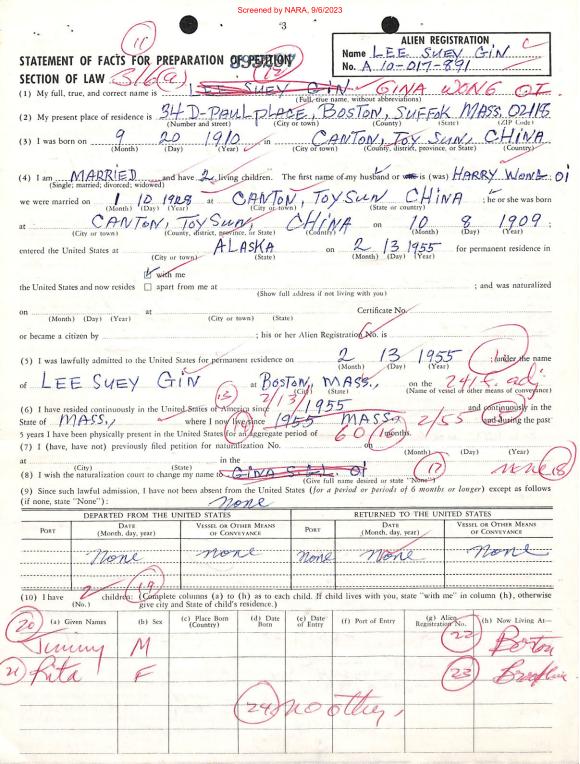 Screened by NARA, 9/6/2023
3
11
ALIEN REGISTRATION
Name LEE SUEY GIN C
No. A 10-017-891
STATEMENT OF FACTS FOR PREPARATION OF PETITION
12
SECTION OF LAW 316(a)
(1) My full, true, and correct name is LEE SUEY GIN GINA WONG OI
(Full, true name, without abbreviations)
(2) My present place of residence is 34 D-PAUL PLACE, BOSTON, SUFFOK MASS, 02118
(Number and street) (City or town) (County) (State) (ZIP Code)
(3) I was born on 9 20 1910 in CANTON, TOY SUN, CHINA
(Month) (Day) (Year) (City or town) (County, district, province, or State) (Country)
(4) I am MARRIED and have 2 living children. The first name of my husband or wife is (was) HARRY WONG OI
(Single; married; divorced; widowed)
we were married on 1 10 1928 at CANTON, TOYSUN CHINA; he or she was born
(Month) (Day) (Year) (City or town) (State or country)
at CANTON, TOYSUN, CHINA on 10 8 1909;
(City or town) (County, district, province, or State) (Country) (Month) (Day) (Year)
entered the United States at ALASKA on 2 13 1955 for permanent residence in
(City or town) (State) (Month) (Day) (Year)
with me
the United States and now resides apart from me at ; and was naturalized
(Show full address if not living with you)
on at Certificate No.
(Month) (Day) (Year) (City or town) (State)
or became a citizen by ; his or her Alien Registration No. is
(5) I was lawfully admitted to the United States for permanent residence on 2 13 1955; under the name
(Month) (Day) (Year)
of LEE SUEY GIN at BOSTON, MASS., on the 241f. adj
(City) (State) (Name of vessel or other means of conveyance)
13 2/13/
(6) I have resided continuously in the United States of America since 1955 and continuously in the
State of MASS., where I now live since 1955 MASS. 2/55 and during the past
5 years I have been physically present in the United States for an aggregate period of 60 months.
(7) I have, (have not) previously filed petition for naturalization No. on
(Month) (Day) (Year)
at in the
(City) (State) 17 none 18
(8) I wish the naturalization court to change my name to
(Give full name desired or state "None")
(9) Since such lawful admission, I have not been absent from the United States (for a period or periods of 6 months or longer) except as follows
(if none, state "None"): None
DEPARTED FROM THE UNITED STATES RETURNED TO THE UNITED STATES
PORT DATE (Month, day, year) VESSEL OR OTHER MEANS OF CONVEYANCE PORT DATE (Month, day, year) VESSEL OR OTHER MEANS OF CONVEYANCE
None None None None None
19
(10) I have 2 children: (Complete columns (a) to (h) as to each child. If child lives with you, state "with me" in column (h), otherwise
(No.) give city and State of child's residence.)
(a) Given Names (b) Sex (c) Place Born (Country) (d) Date Born (e) Date of Entry (f) Port of Entry (g) Alien Registration No. (h) Now Living At—
20 Jimmy M 22 Boston
21 Rita F 23
24 no other,